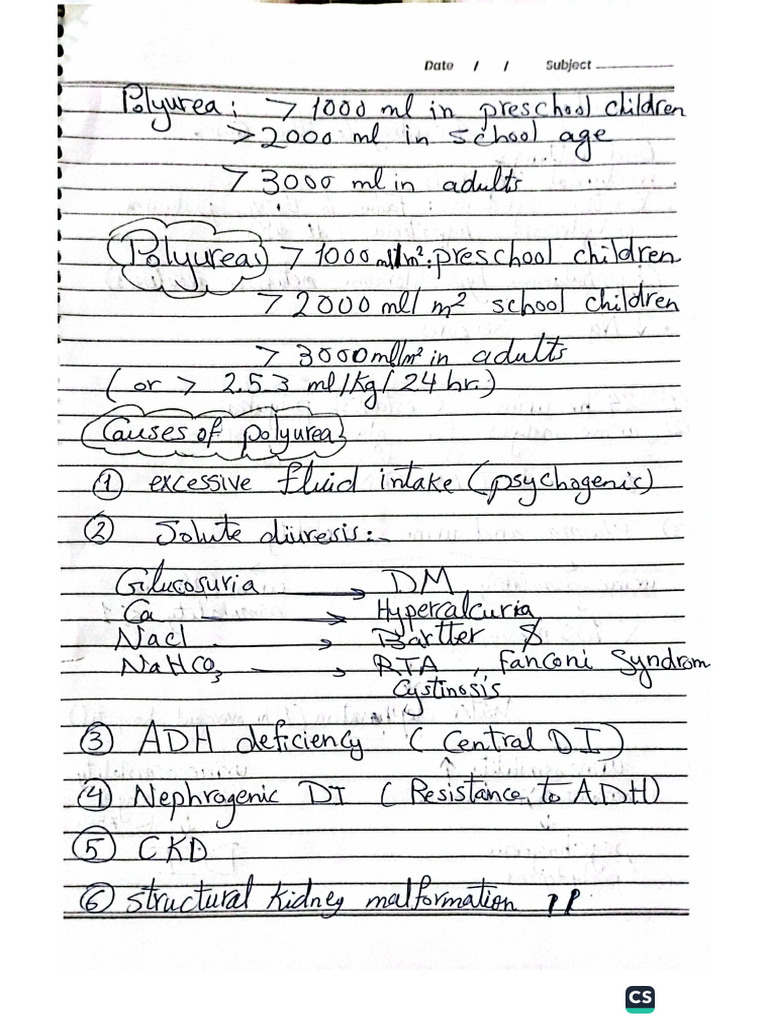 Date / / Subject
Polyurea: > 1000 ml in preschool children
> 2000 ml in school age
> 3000 ml in adults
Polyurea: > 1000 ml/m²: preschool children
> 2000 ml/m² school children
> 3000 ml/m² in adults
(or > 2.53 ml/kg/24 hr.)
Causes of polyurea
① excessive fluid intake (psychogenic)
② Solute diuresis:-
Glucosuria → DM
Ca → Hypercalcuria
Nacl → Bartter $
NaHCO₃ → RTA, Fanconi Syndrom
Cystinosis
③ ADH deficiency (Central DI)
④ Nephrogenic DI (Resistance to ADH)
⑤ CKD
⑥ structural kidney malformation
CS